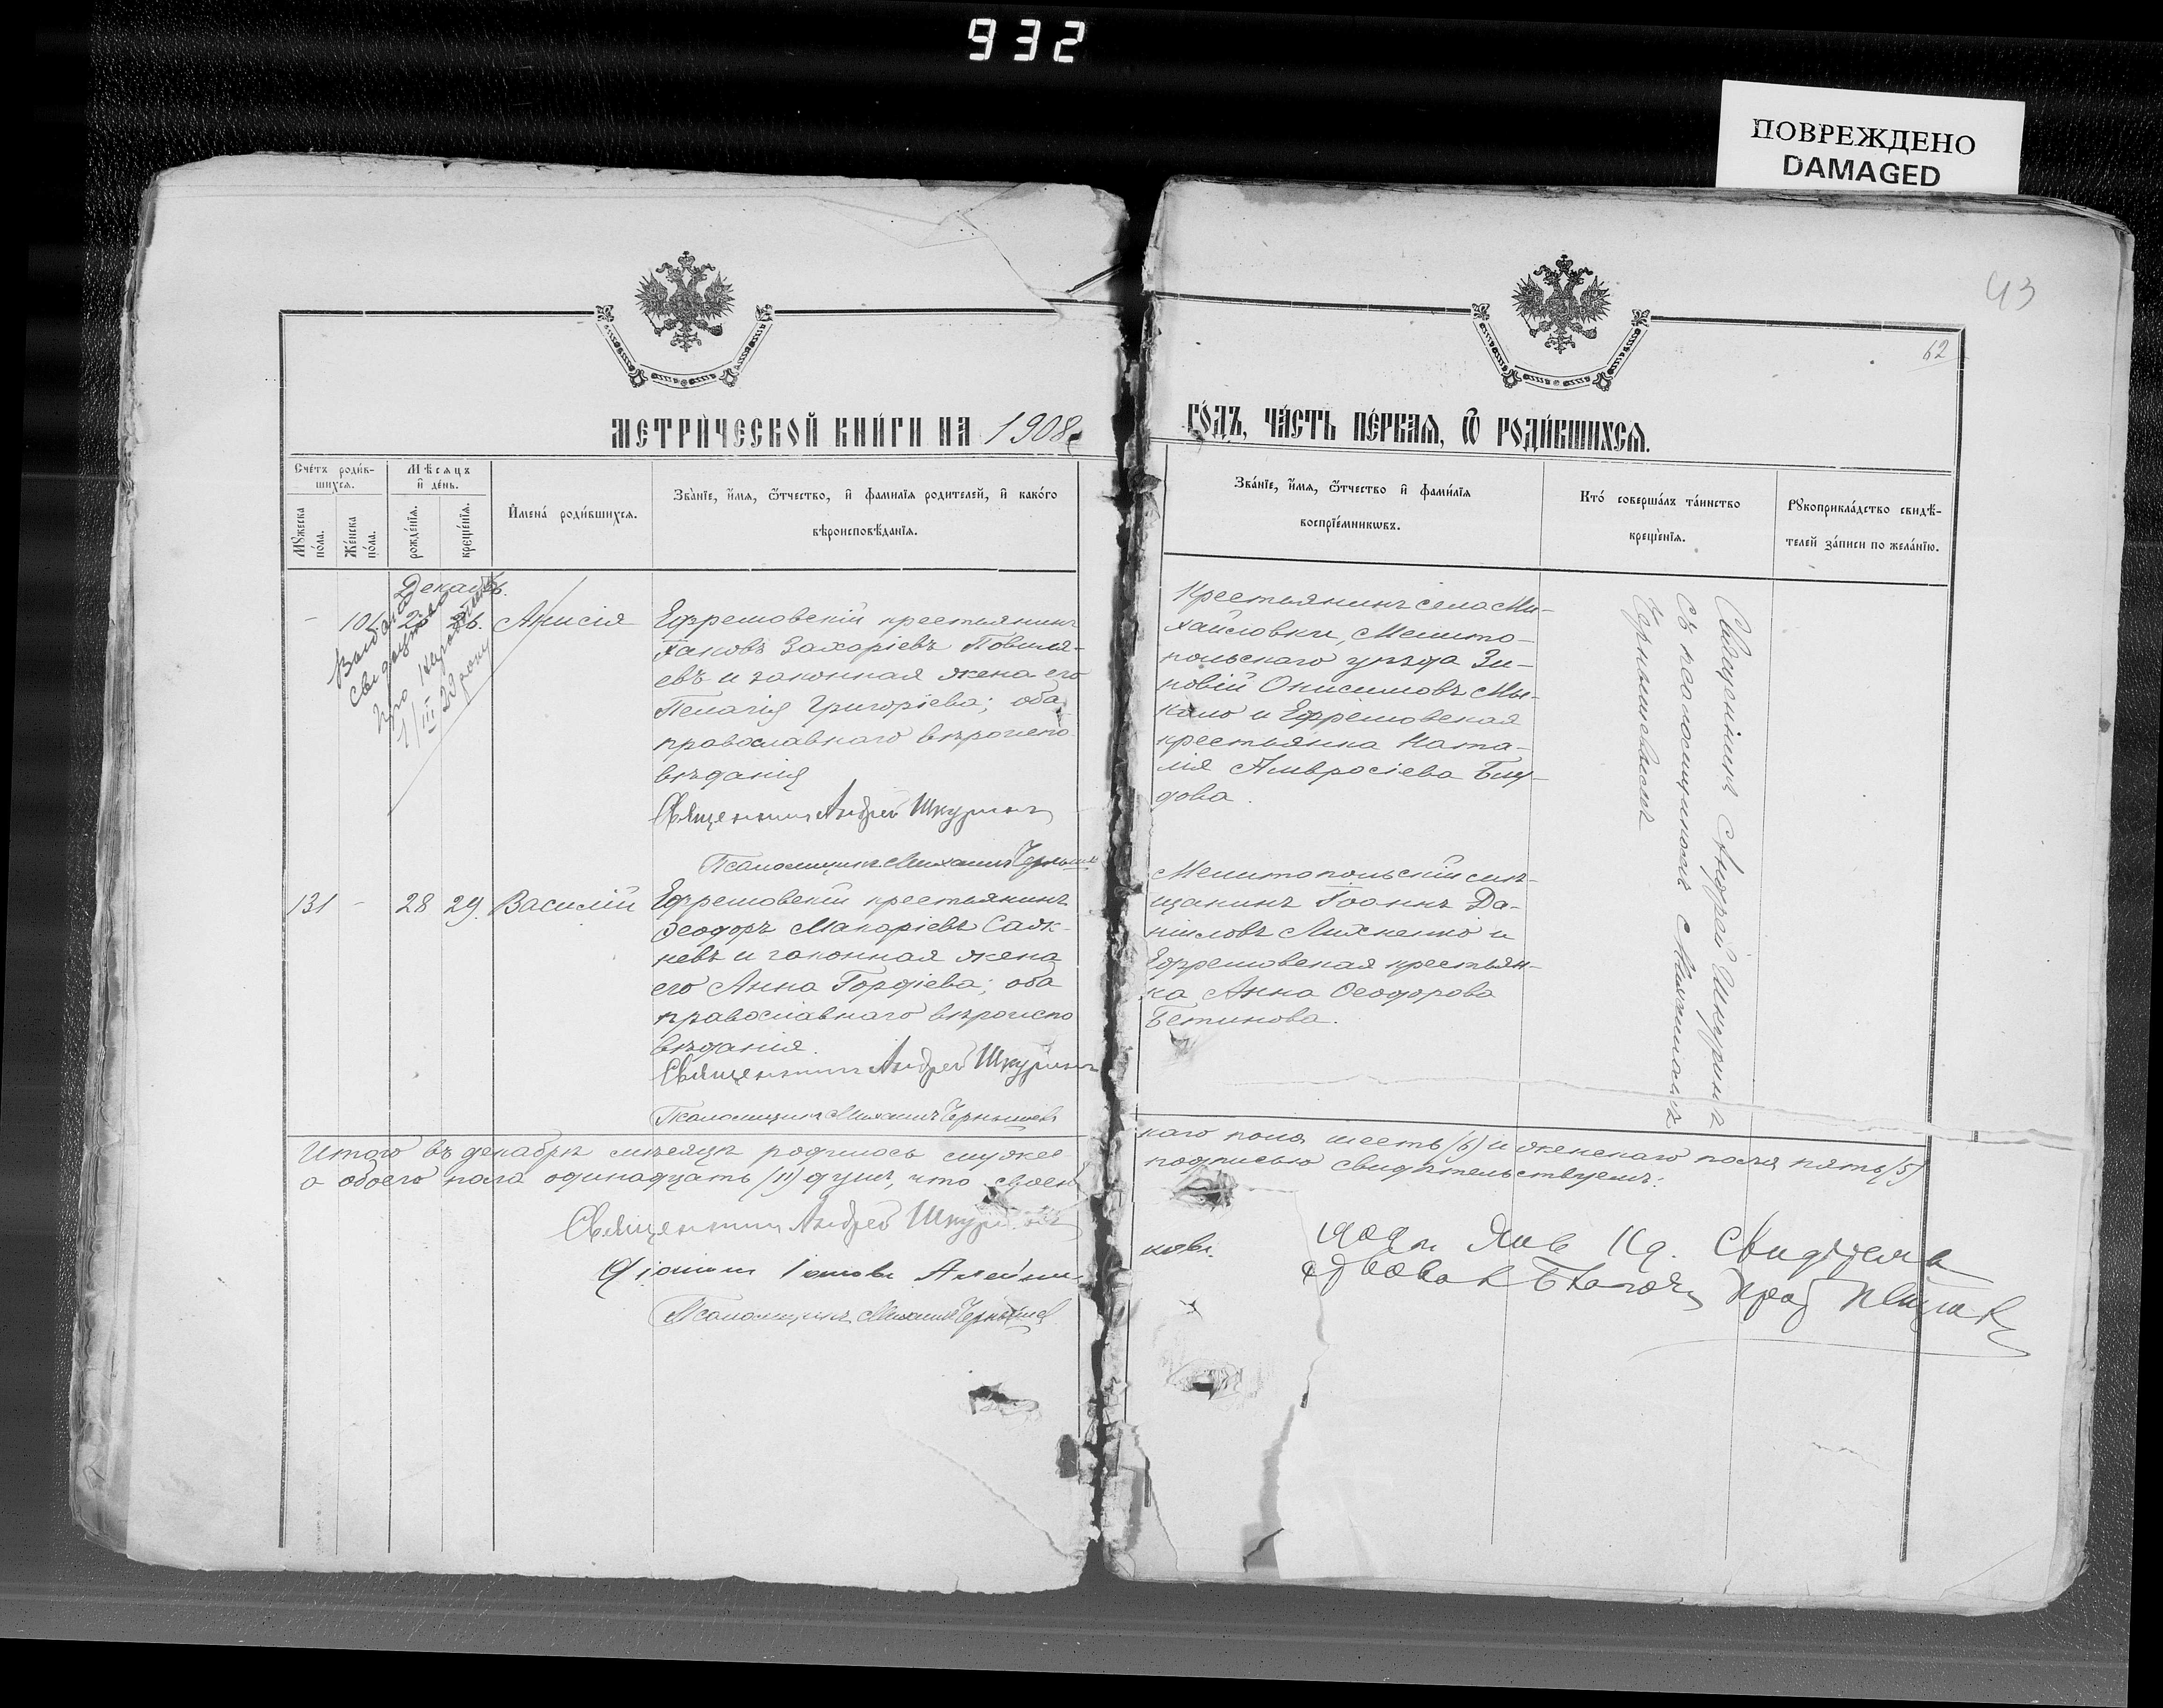 932
ПОВРЕЖДЕНО
DAMAGED
43
62
МЕТРИ́ЧЕСКОЙ КНИ́ГИ НА 1908
ГО́ДЪ, ЧА́СТЬ ПЕ́РВАЯ, Ѿ РОДИ́ВШИХСЯ.
Счетъ роди́в-
шихся.
Мѣсяцъ
и҆ де́нь.
Мꙋжеска
по́ла.
Же́нска
по́ла.
рожде́нїя.
креще́нїя.
И҆мена́ роди́вшихся.
Зва́нїе, и҆́мя, ѻ҆́тчество, и҆ фами́лїя родителей, и҆ како́го
вѣроисповѣ́данїя.
Зва́нїе, и҆́мя, ѻ҆́тчество и҆ фами́лїя
воспрїе́мникѡвъ.
Кто́ соверша́лъ та́инство
креще́нїя.
Рꙋкоприкла́дство свидѣ́-
телей за́писи по жела́нїю.
Декабь.
- 101 25 26. Анисія
Ефремовскій крестьянинъ
Іаковъ Захаріевъ
евъ и законная жена его
Пелагія Григоріева; оба
православнаго вѣроиспо
вѣданія
Священникъ Андрей Шкуринъ
Псаломщикъ Михаилъ Чернышев
Выдано
1/III 22
Крестьянинъ села Ми-
хайловки, Мелито-
польскаго уѣзда Зи-
новій Онисимовъ
и Ефремовская
крестьянка Ната-
лія Амвросіева
дова.
Священникъ Андрей Шкуринъ
съ псаломщикомъ Михаиломъ
Чернышевымъ
131 - 28 29. Василій
Ефремовскій крестьянинъ
Ѳеодоръ Макаріевъ Садк-
невъ и законная жена
его Анна Гордіева; оба
православнаго вѣроиспо
вѣданія.
Священникъ Андрей Шкуринъ
Псаломщикъ Михаилъ Чернышев
Мелитопольскій мѣ-
щанинъ Іоаннъ Да-
ниловъ Лихненко и
Ефремовская крестьян-
ка Анна Ѳеодорова
Бетинова.
Итого въ декабрѣ мѣсяцѣ родилось мужес
каго пола шесть /6/ и женскаго пола пять /5/
а обоего пола одинадцать /11/ душъ, что своею
подписью свидѣтельствуемъ:
Священникъ Андрей Шкуринъ
Діаконъ Алейни-
ковъ.
Псаломщикъ Михаилъ Чернышев
1909 г. Янв.